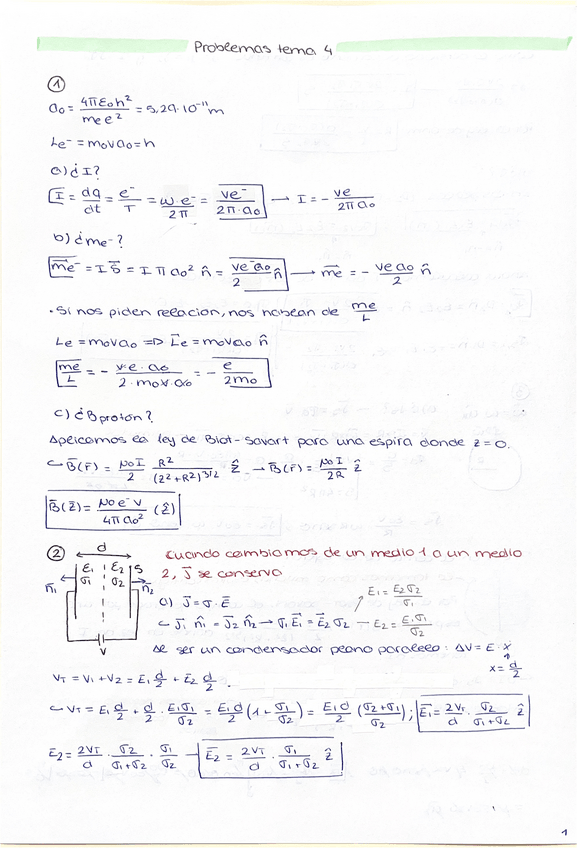 Problemas tema 4
①
a₀ = 4πε₀ħ² / mₑe² = 5,29·10⁻¹¹ m
Le⁻ = m₀va₀ = ħ
a) ¿I?
I = dq/dt = e⁻/T = ω·e⁻/2π = ve⁻/2π·a₀ → I = - ve/2πa₀
b) ¿me⁻?
m⃗e⁻ = I S⃗ = I π a₀² n̂ = ve⁻a₀/2 n̂ → m⃗e = - vea₀/2 n̂
· Si nos piden relacion, nos hablan de me/L
Le = m₀va₀ => L⃗e = m₀va₀ n̂
me/L = - v·e·a₀ / 2·m₀v·a₀ = - e/2m₀
c) ¿B protón?
Aplicamos la ley de Biot-Savart para una espira donde z = 0.
↪ B⃗(r⃗) = μ₀I/2 R²/(z²+R²)^3/2 ẑ → B⃗(r⃗) = μ₀I/2R ẑ
B⃗(z⃗) = μ₀e⁻v/4πa₀² (ẑ)
②
d
ε₁ ε₂ S
σ₁ σ₂
n̂₁ n̂₂
V
Cuando cambiamos de un medio 1 a un medio
2, J⃗ se conserva
a) J⃗ = σ·E⃗
E₁ = E₂σ₂/σ₁
↪ J⃗₁ n̂₁ = J⃗₂ n̂₂ → σ₁E⃗₁ = E⃗₂σ₂ — E₂ = E₁σ₁/σ₂
Al ser un condensador plano paralelo: ΔV = E·x
x = d/2
V_T = V₁ + V₂ = E₁ d/2 + E₂ d/2.
↪ V_T = E₁ d/2 + d/2 · E₁σ₁/σ₂ = E₁d/2 (1 + σ₁/σ₂) = E₁d/2 (σ₂+σ₁/σ₂); E⃗₁ = 2V_T/d · σ₂/σ₁+σ₂ ẑ
E₂ = 2V_T/d · σ₂/σ₁+σ₂ · σ₁/σ₂ → E⃗₂ = 2V_T/d · σ₁/σ₁+σ₂ ẑ
1